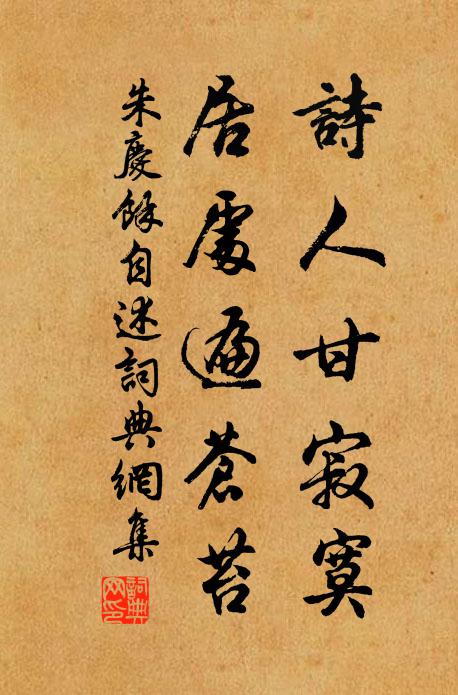 詩人甘寂寞
居處遍蒼苔
朱慶餘自述詞典網集
詞典
網印